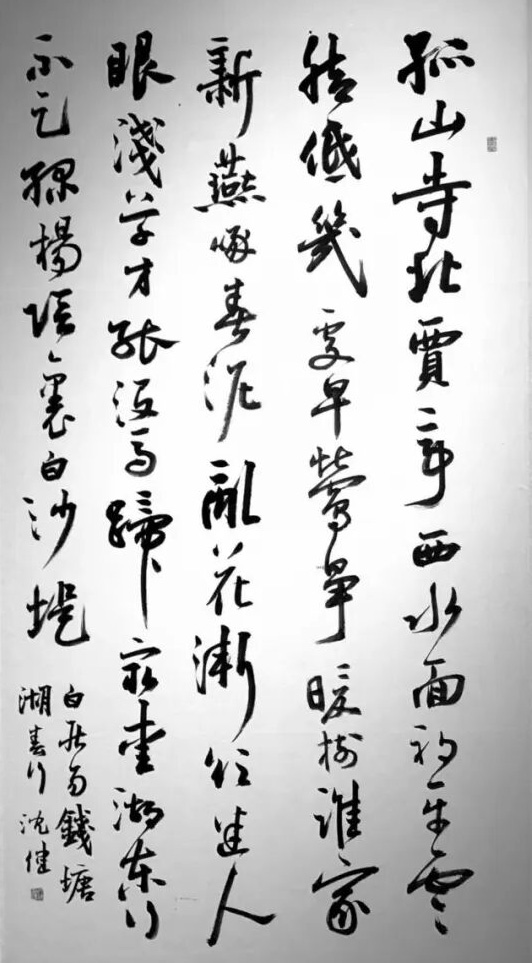 孤山寺北賈亭西水面初平雲
腳低幾處早鶯爭暖樹誰家
新燕啄春泥亂花漸欲迷人
眼淺草才能没馬蹄最愛湖東行
不足綠楊陰裏白沙堤
白居易錢塘
湖春行沈健